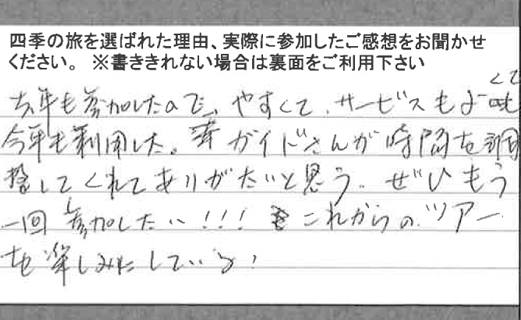 四季の旅を選ばれた理由、実際に参加したご感想をお聞かせ
ください。 ※書ききれない場合は裏面をご利用下さい
去年も参加したので、やすくて、サービスもよくて
今年も利用した。ガイドさんが時間を調
整してくれてありがたいと思う。ぜひもう
一回参加したい!!! これからのツアー
を楽しみにしている!